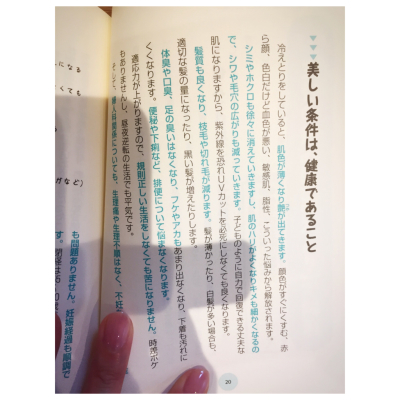 美しい条件は、健康であること
冷えとりをしていると、肌色が薄くなり艶が出てきます。顔色がすぐにくすむ、赤
ら顔、色白だけど血色が悪い、敏感肌、脂性、こういった悩みから解放されます。
シミやホクロも徐々に消えていきますし、肌のハリがよくなりキメも細かくなるの
で、シワや毛穴の広がりも減っていきます。子どものように自力で回復できる丈夫な
肌になりますから、紫外線を恐れUVカットを必死にしなくても良くなります。
髪質も良くなり、枝毛や切れ毛が減ります。髪が薄かったり、白髪が多い場合も、
適切な髪の量になったり、黒い髪が増えたりします。
体臭や口臭、足の臭いはなくなり、フケやアカもあまり出なくなり、下着も汚れに
くくなります。便秘や下痢など、排便について悩まなくなります。
適応力が上がりますので、規則正しい生活をしなくても苦になりません。時差ボケ
もありませんし、昼夜逆転の生活でも平気です。
婦人科関係についても、生理痛や生理不順はなく、不妊
も問題ありません。妊娠経過も順調で
20